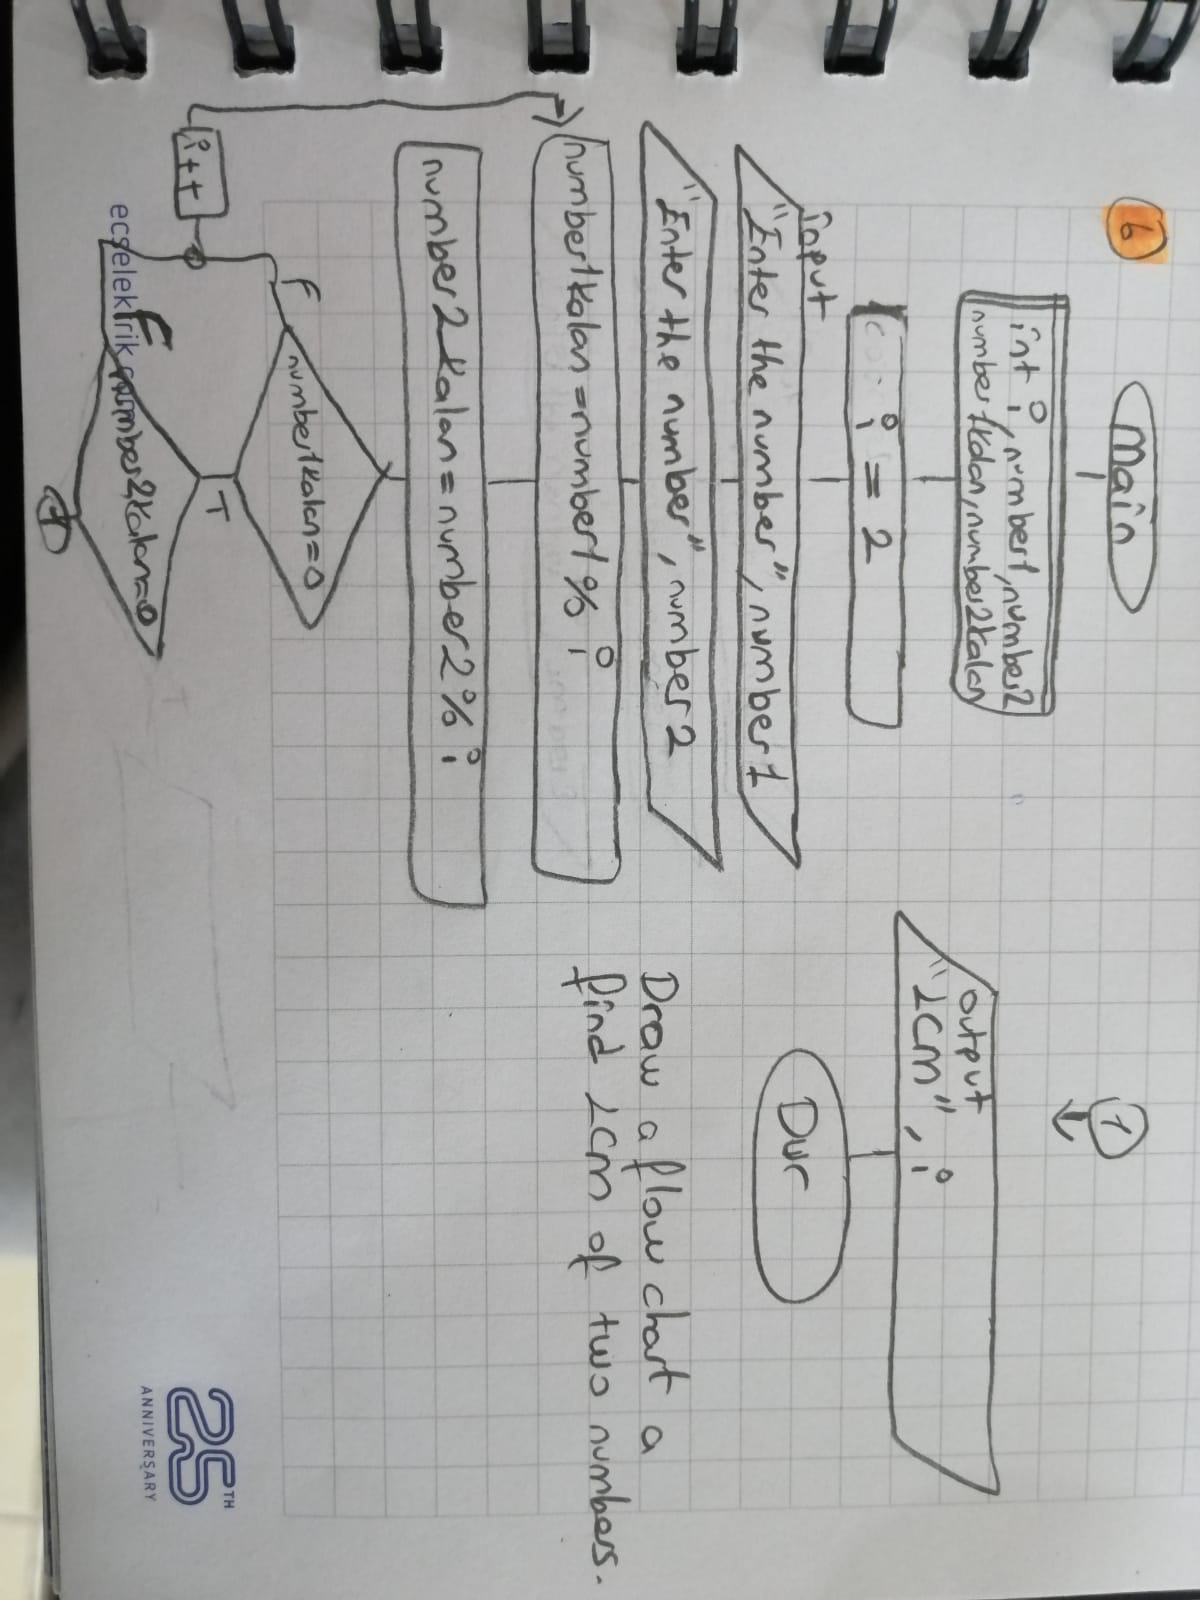 6
main
int i, number1, number2
number1kalan, number2kalan
i = 2
input
"Enter the number", number1
"Enter the number", number2
number1kalan = number1 % i
number2kalan = number2 % i
number1kalan=0
F
T
i++
number2kalan=0
F
1
1
output
"LCM", i
Dur
Draw a flow chart a
find LCM of two numbers.
ecselektrik
25TH
ANNIVERSARY